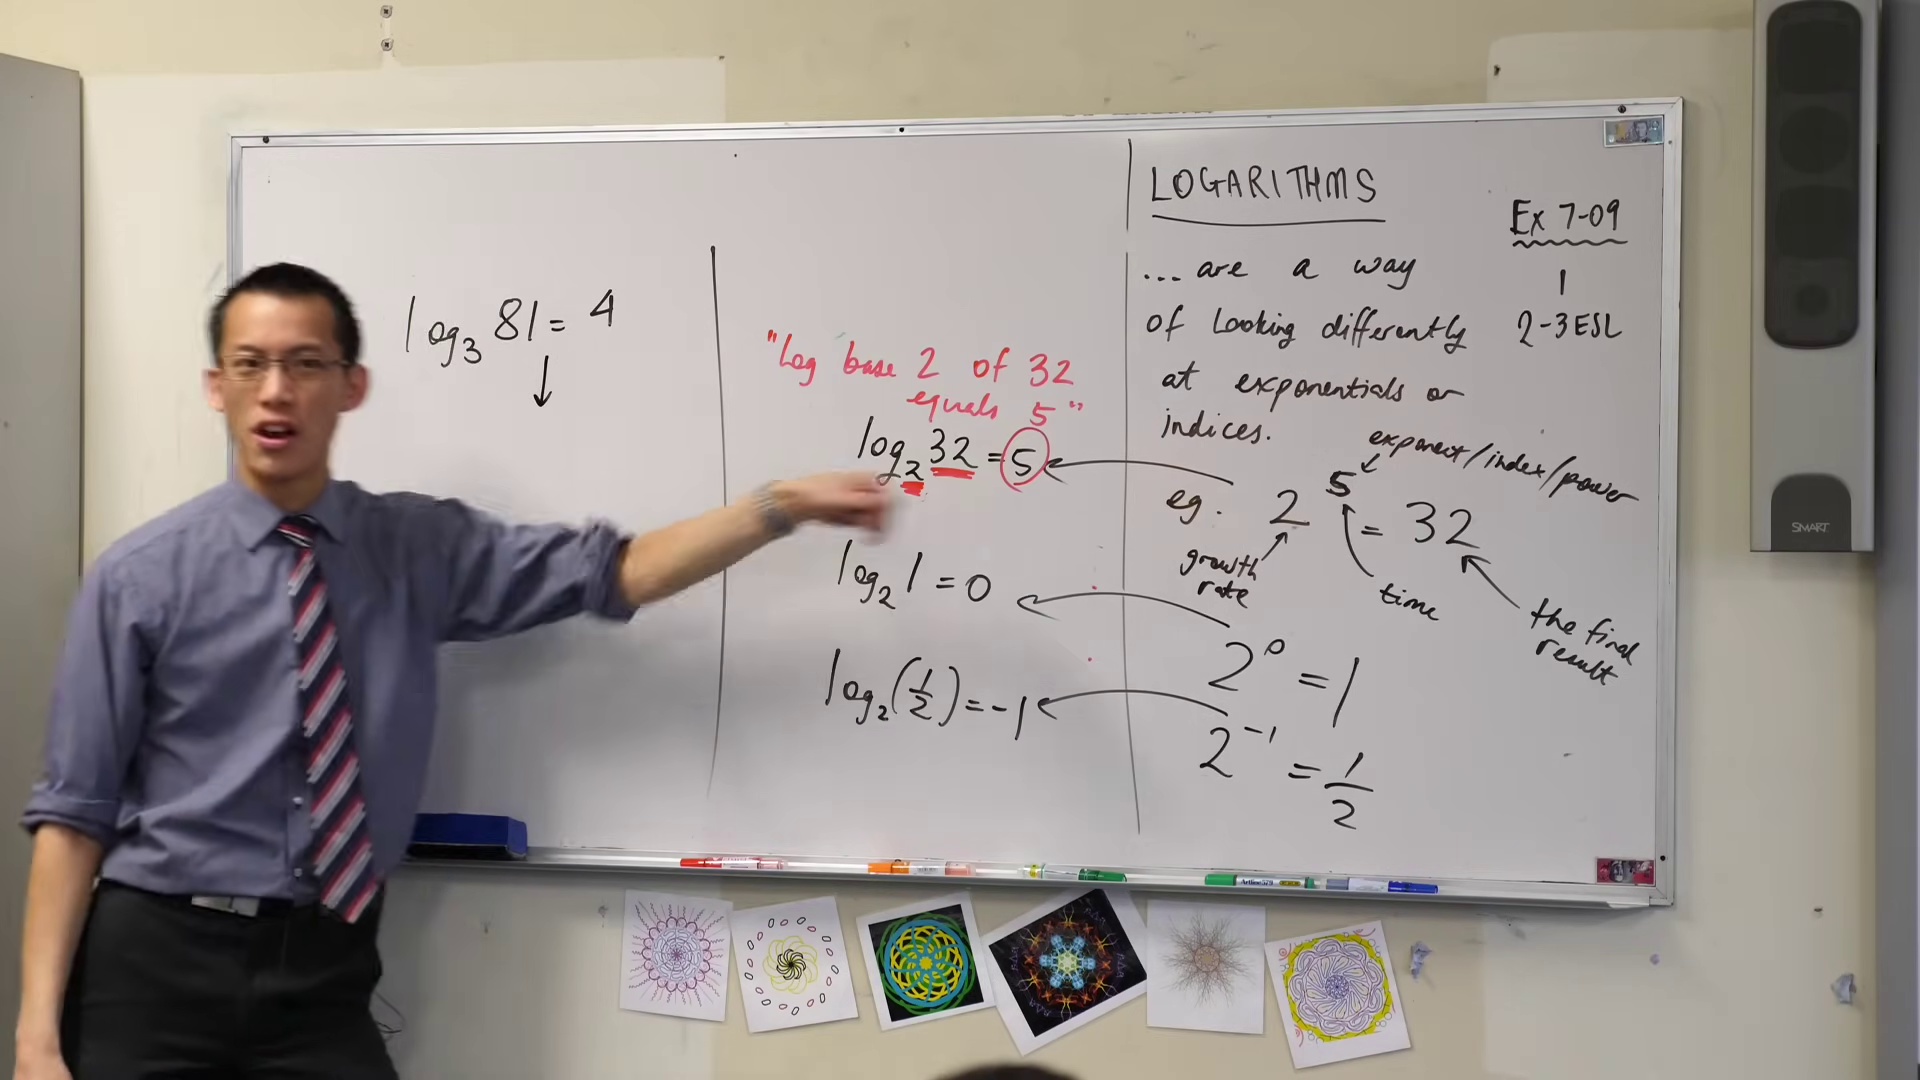 log₃ 81 = 4
↓
"Log base 2 of 32
equals 5"
log₂ 32 = 5
log₂ 1 = 0
log₂ (1/2) = -1
LOGARITHMS
Ex 7-09
1
2-3 ESL
... are a way
of looking differently
at exponentials or
indices.
exponent/index/power
eg. 2⁵ = 32
growth
rate
time
the final
result
2⁰ = 1
2⁻¹ = 1/2
SMART